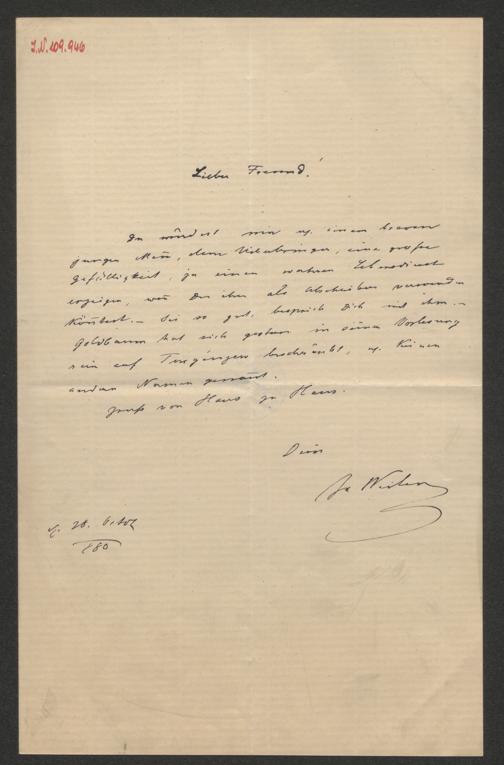 I.N. 109.946
Lieber Freund!
Du würdest mir u. einem braven
jungen Mañ, dem Ueberbringer, eine große
Gefälligkeit, ja einen wahren Liebesdienst
erzeigen, weñ Du ihn als Abschreiber verwenden
köñtest. — Sei so gut, besprich Dich mit ihm. —
Goldbaum hat sich gestern in seiner Vorlesung
rein auf Turgénjew beschränkt, u. keinen
andern Namen genañt.
Gruß von Haus zu Haus.
Dein
28.
880